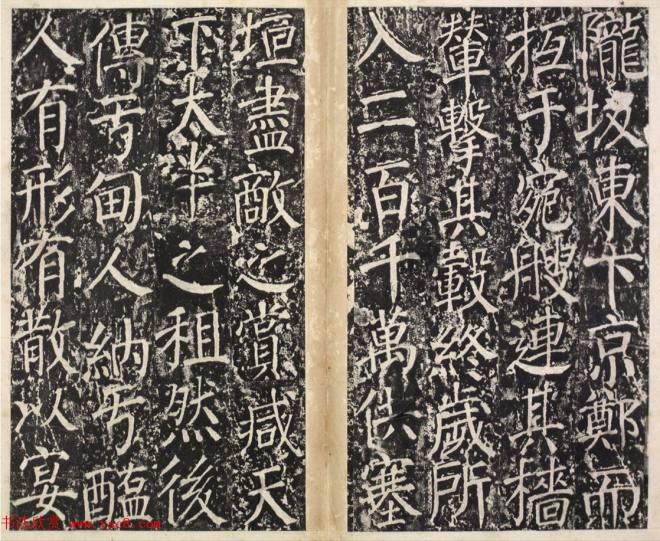 隴坂東下京鄭而
抵于宛艘連其檣
輦擊其轂終歲所
入二百千萬供塞
垣盡敵之賞減天
下太半之租然後
傳于甸人納于醢
人有形有散以宴
书法欣赏 www.yac8.com